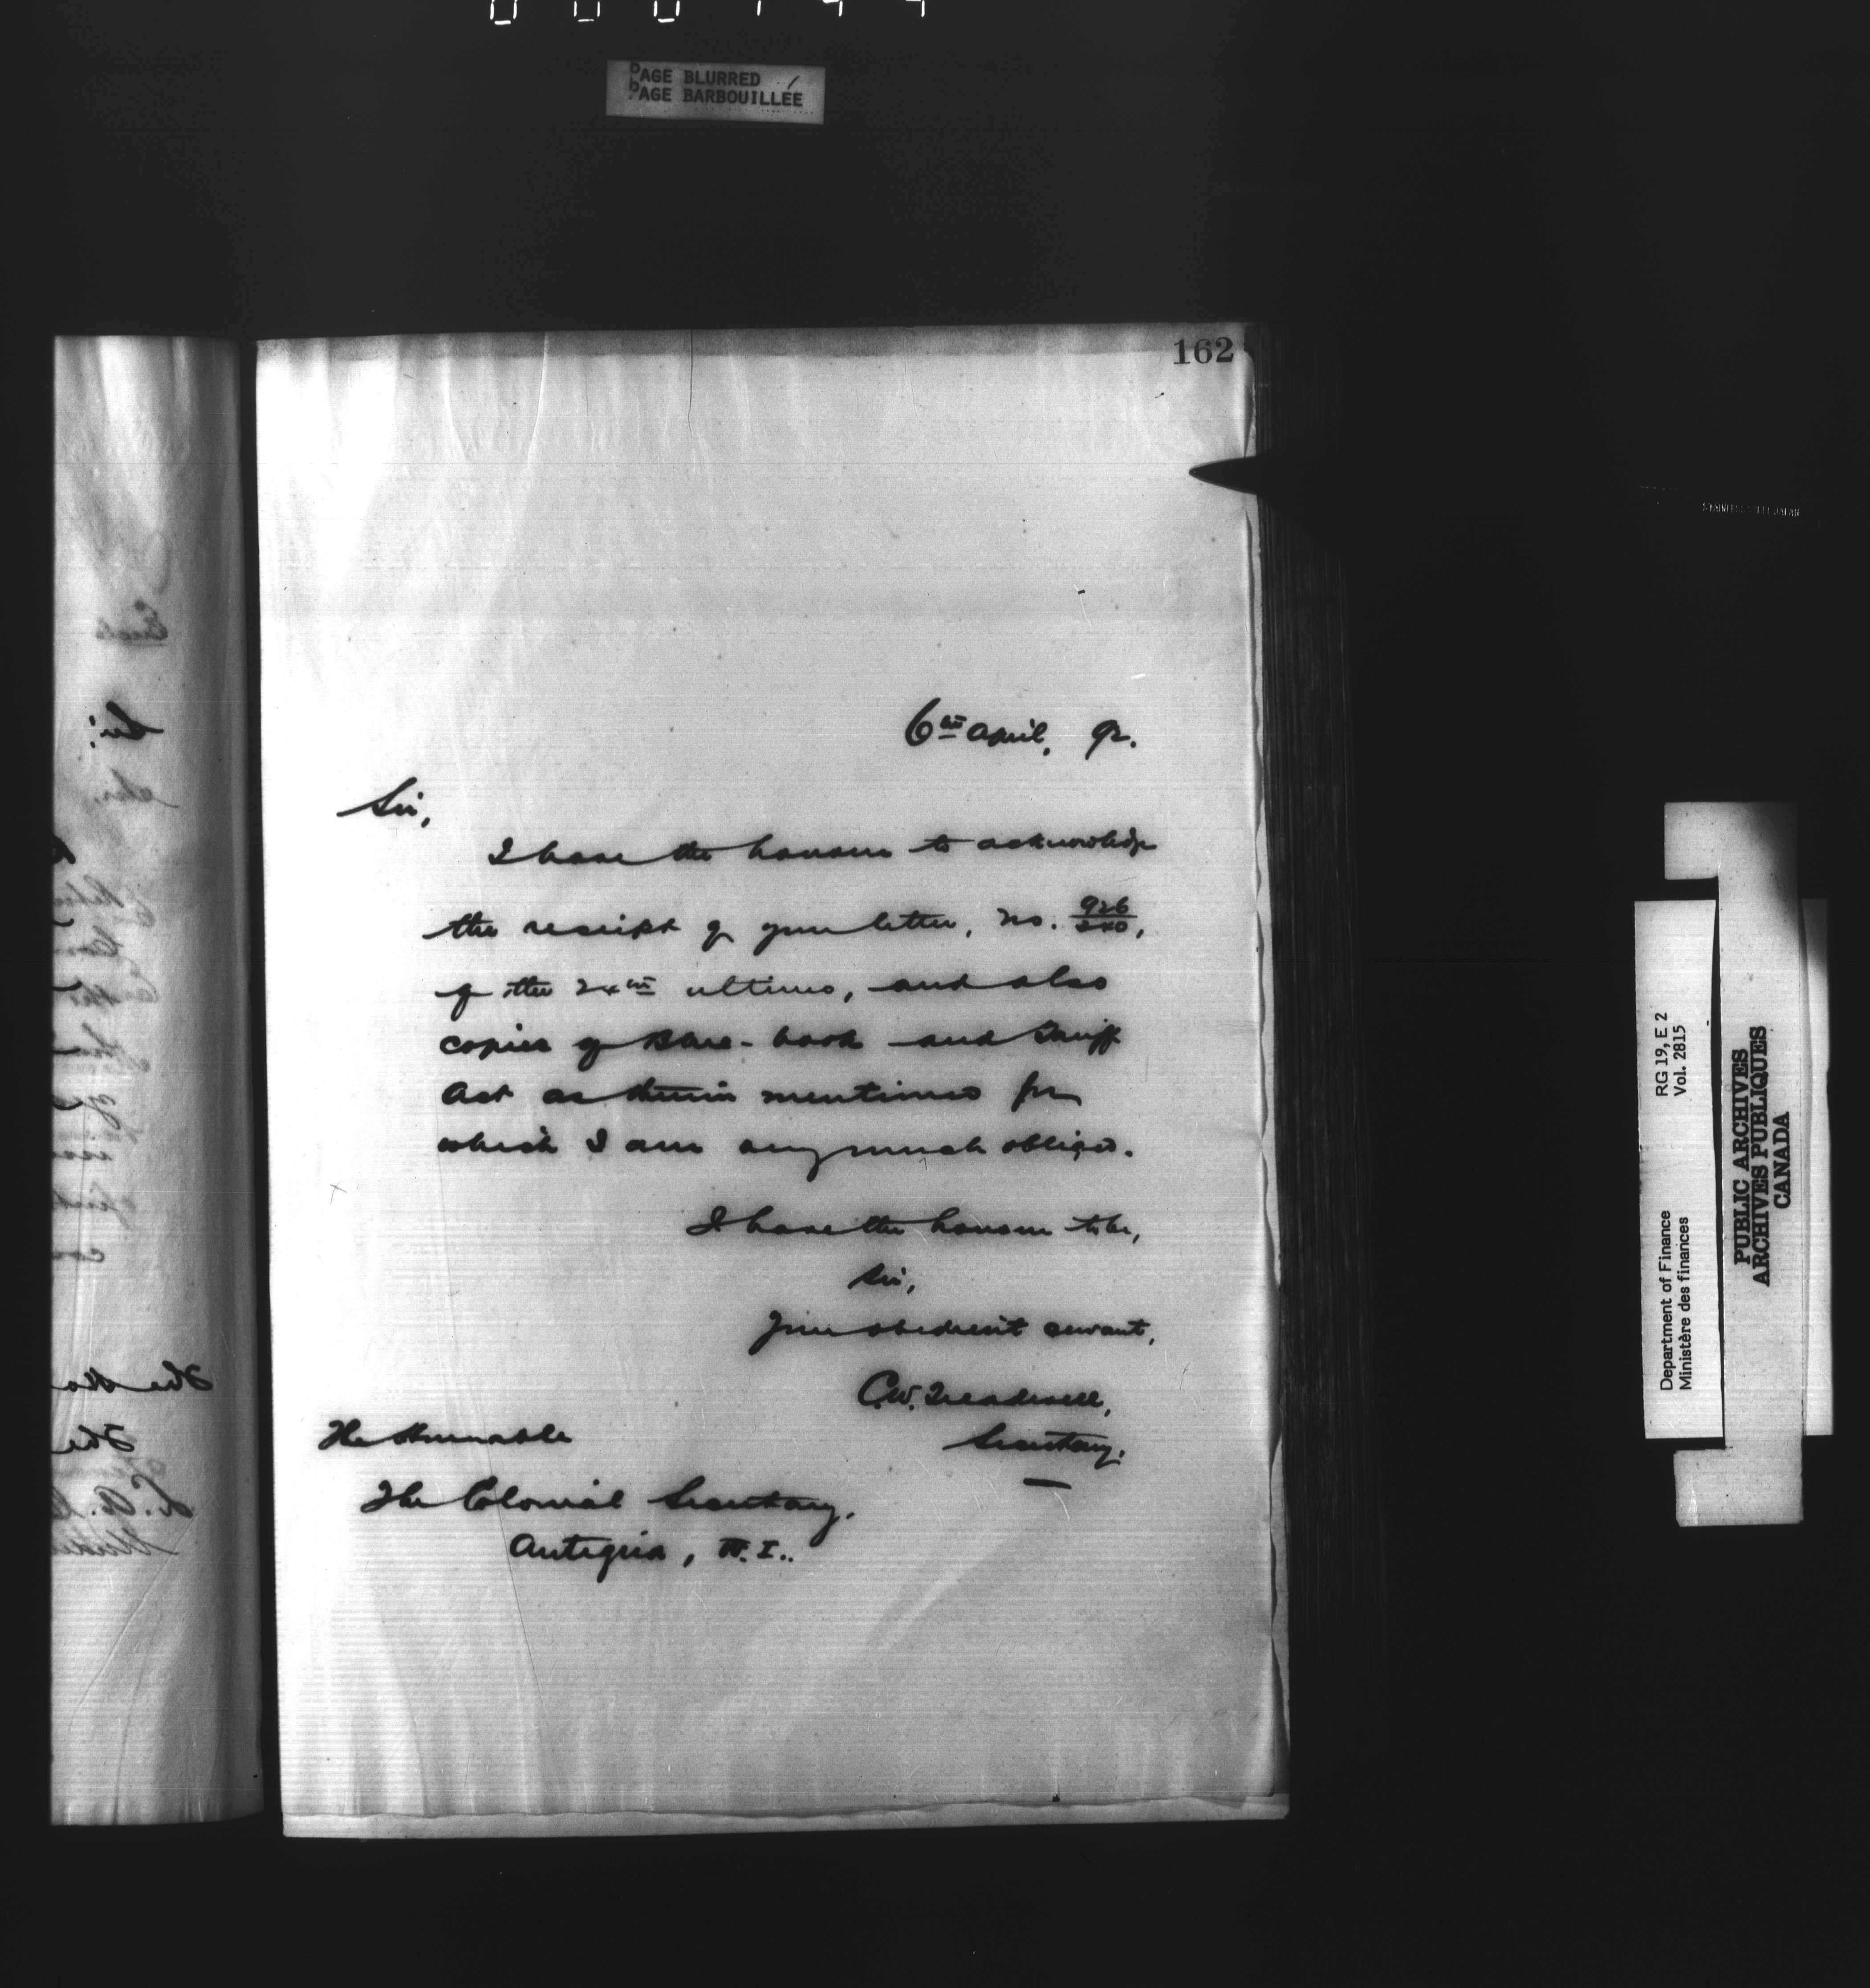 PAGE BLURRED
PAGE BARBOUILLÉE
162
6th April, 92.
Sir,
I have the honour to acknowledge
the receipt of your letter, No. 926/240,
of the 24th ultimo, and also
copies of Blue-book and Tariff
Act as therein mentioned for
which I am very much obliged.
I have the honour to be,
Sir,
Your obedient servant,
C.W. Treadwell,
Secretary.
The Honourable
The Colonial Secretary,
Antigua, W.I..
Sir:
The Ho
The
RG 19, E 2
Vol. 2815
Department of Finance
Ministère des finances
PUBLIC ARCHIVES
ARCHIVES PUBLIQUES
CANADA